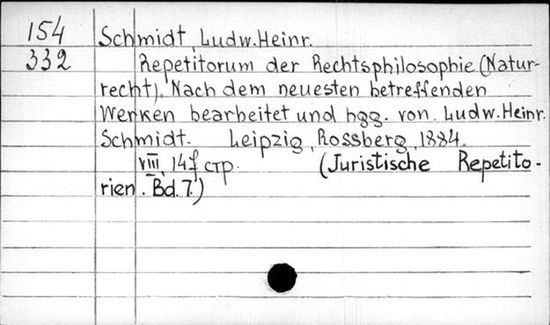 154 Schmidt, Ludw. Heinr.
332 Repetitorum der Rechtsphilosophie (Natur-
recht). Nach dem neuesten betreffenden
Werken bearbeitet und hgg. von Ludw. Heinr.
Schmidt. Leipzig, Rossberg, 1884.
VIII, стр. (Juristische Repetito-
rien. Bd. 7.)